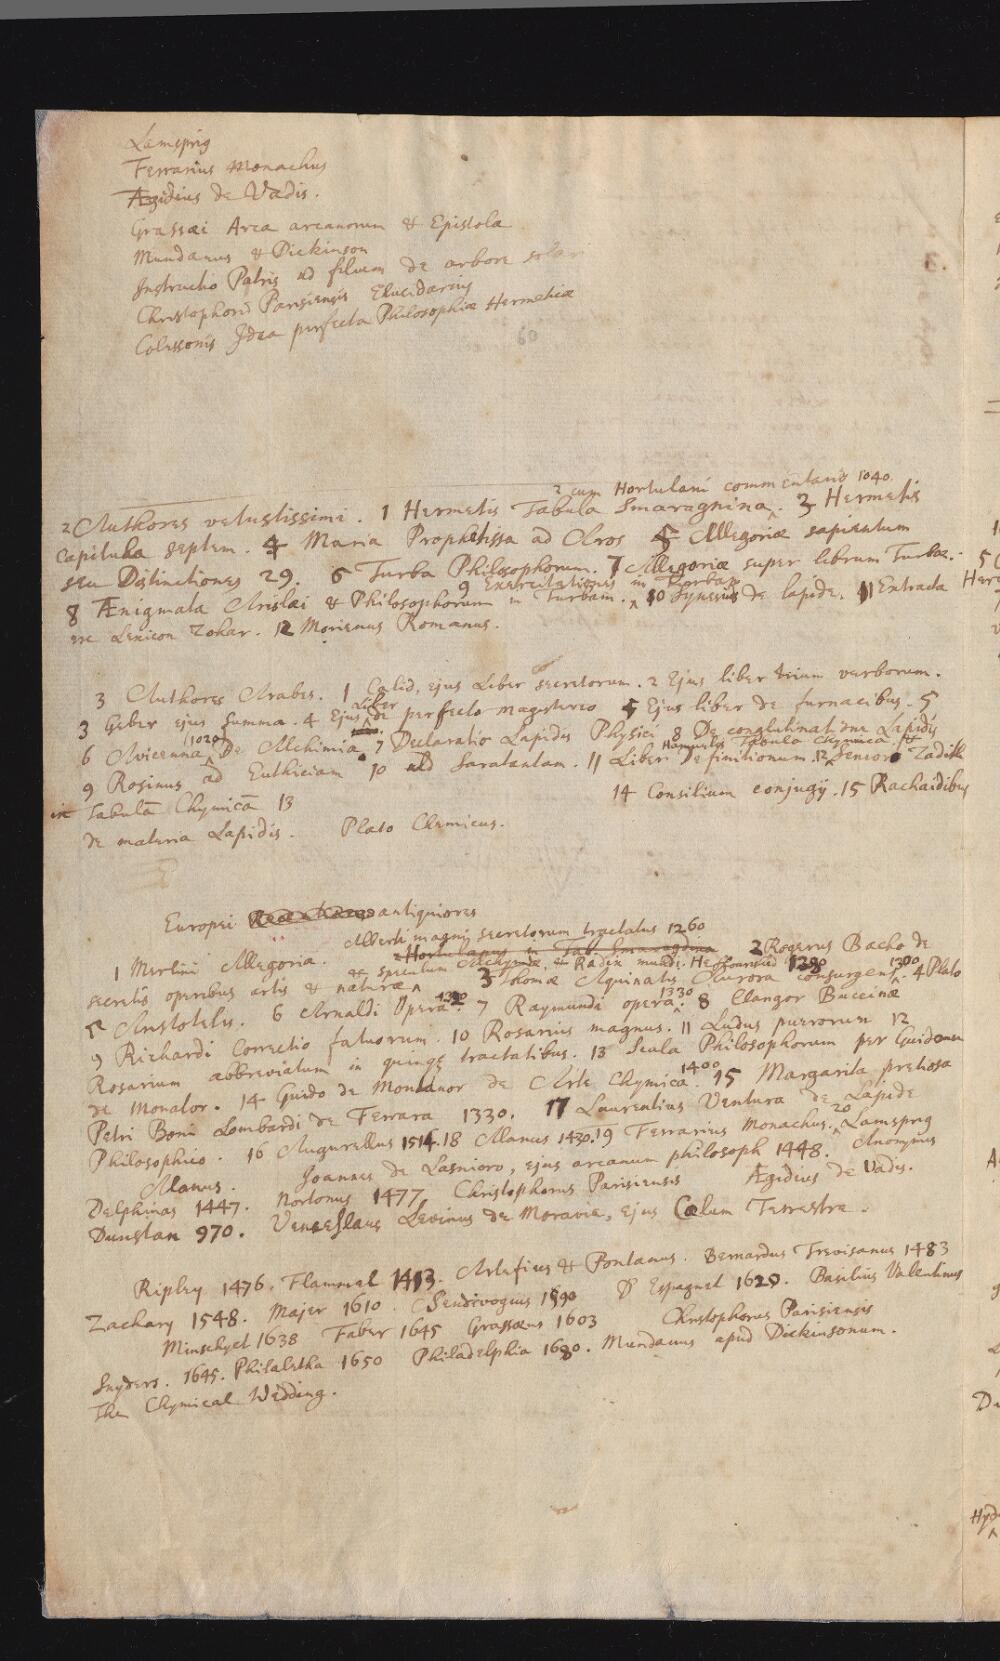 Lamsprig
Ferrarius Monachus
Ægidius de Vadis.
Grassæi Arca arcanorum & Epistola
Mundanus & Dickinson
Instructio Patris ad filium de arbore solari
Christophori Parisiensis Elucidarius
Colessonis Idea perfecta Philosophiæ Hermeticæ
60
2 cum Hortulani commentario 1040.
2 Authores vetustissimi. 1 Hermetis Tabula Smaragdina. 3 Hermetis
capitula septem. 4 Maria Prophetissa ad Aros 5 Allegoriæ sapientum
seu Distinctiones 29. 6 Turba Philosophorum. 7 Allegoriæ super librum Turbæ.
9 Exercitationes in Turbam
8 Ænigmata Arislai & Philosophorum in Turbam. 10 Synesius de lapide. 11 Extracta
ex Lexicon Zohar. 12 Morienus Romanus.
3 Authores Arabes. 1 Calid, ejus Liber secretorum. 2 Ejus liber trium verborum.
Liber
3 Geber ejus summa. 4 Ejus de perfecto magisterio 5 Ejus liber de furnacibus. 5
1020
6 Avicenna De Alchimia 7 Declaratio Lapidis Physici 8 De conglutinatione Lapidis
Hamuelis Tabula Chymica
9 Rosinus ad Euthiciam 10 ad Saratantam. 11 Liber Definitionum. 12 Senioris Zadith
in Tabulā Chymicā 13 14 Consilium conjugÿ. 15 Rachaidibus
de materia Lapidis. Plato Chemicus.
Europei antiquiores
Alberti magni secretorum tractatus 1260
1 Merlini Allegoria. 2 Hortulanus in Tab Smaragdina 2 Rogerus Bacho de
& speculum Alchymiæ. & Radix mundi. He flourished 1280 1300
secretis operibus artis & naturæ 3 Thomæ Aquinatis Aurora consurgens. 4 Plato
1330
5 Aristotelis. 6 Arnaldi Opera. 7 Raymundi opera. 8 Clangor Buccinæ
9 Richardi Correctio fatuorum. 10 Rosarius magnus. 11 Ludus puerorum 12
Rosarium abbreviatum in quinqꝫ tractatibus. 13 Scala Philosophorum per Guidonem
1400
de Monator. 14 Guido de Montanor de Arte Chymica. 15 Margarita pretiosa
Petri Boni Lombardi de Ferrara 1330. 17 Laurentius Ventura de Lapide
20
Philosophico. 16 Augurellus 1514. 18 Alanus 1430. 19 Ferrarius Monachus. Lamsprig
Alanus. Joannes de Lasnioro, ejus arcanum philosoph 1448. Anonymus
Delphinas 1447. Nortonus 1477, Christophorus Parisiensis Ægidius de Vadis.
Dunstan 970. Venceslaus Levinus de Moravia, ejus Cœlum Terrestre.
Ripley 1476. Flammel 1413. Artefius & Pontanus. Bernardus Trevisanus 1483
Zachary 1548. Majer 1610. Sendivogius 1590 D' Espagnet 1620. Basilius Valentinus
Minschyet 1638 Faber 1645 Grassæus 1603 Christophorus Parisiensis
Snyders. 1645. Philaletha 1650 Philadelphia 1680. Mundanus apud Dickinsonum.
The Chymical Wedding.